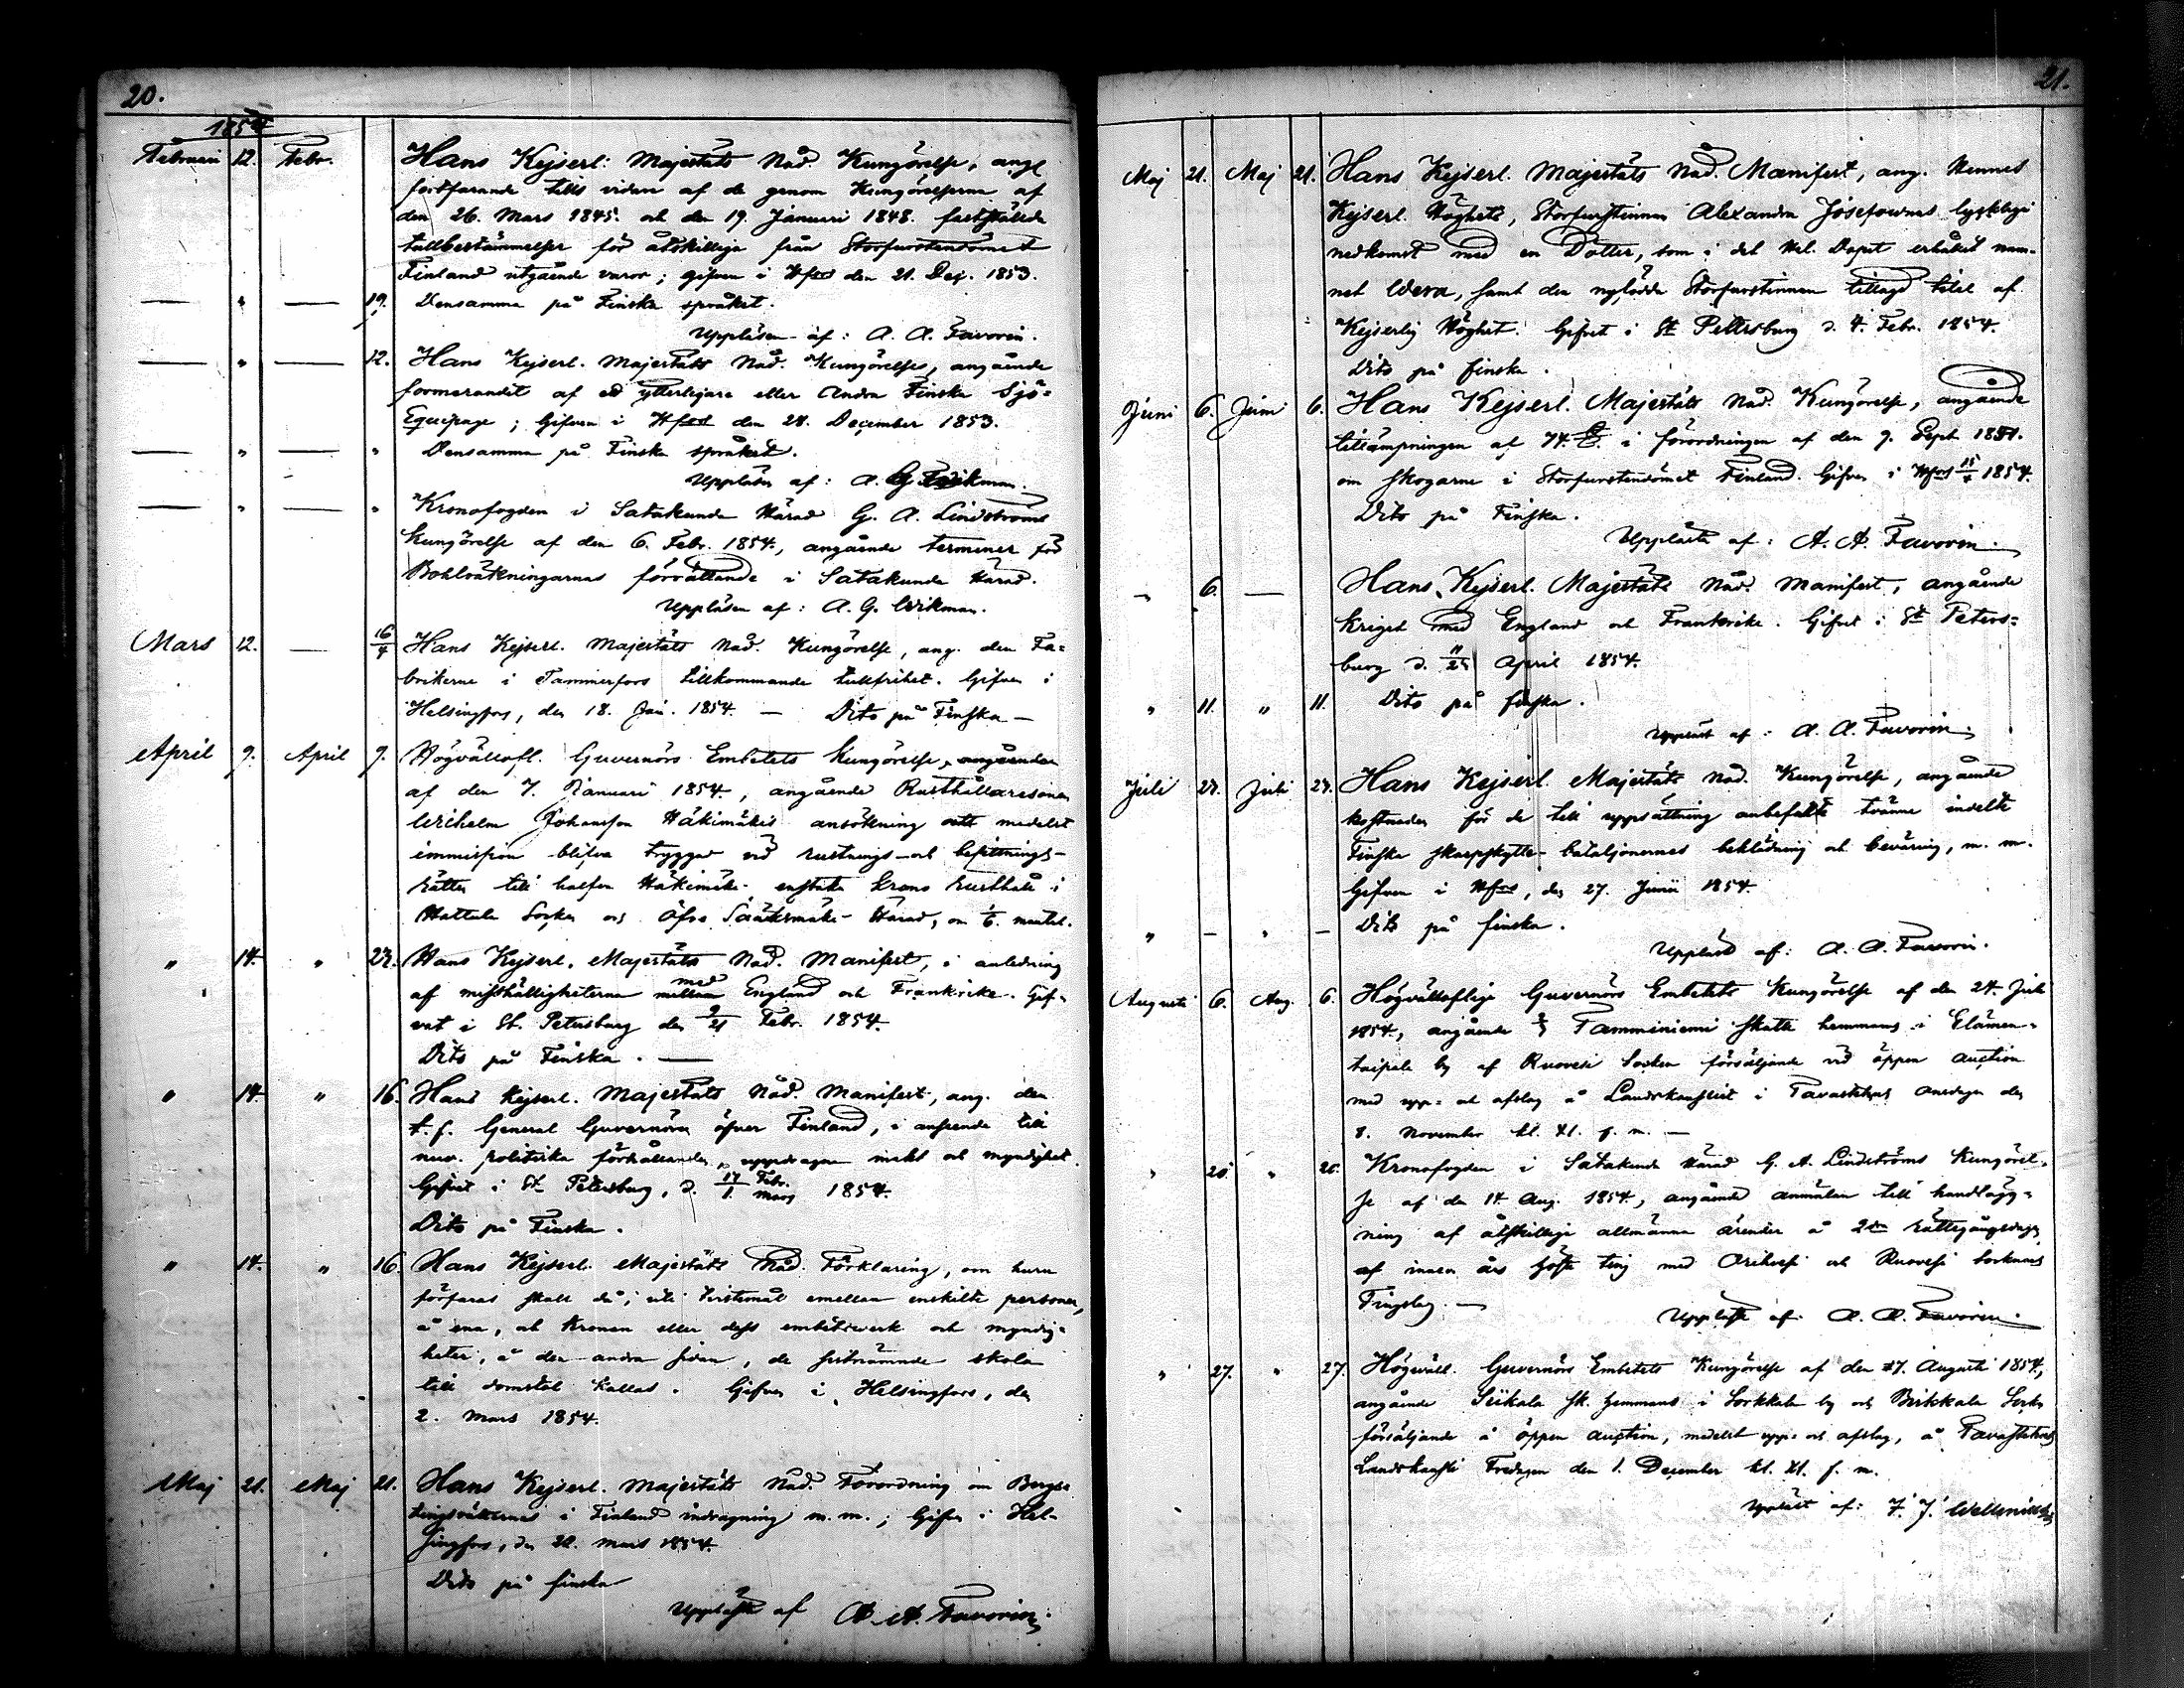 20.
1854
Februari 12. Febr. Hans Kejserl: Majestäts Nåd. Kungörelse, angl
fortfarande tills vidare af de genom Kungörelserna af
den 26. Mars 1845. och den 19. Januari 1848. fastställde
tullbestämmelser för åtskillige från Storfurstendömet
Finland utgående varor; gifven i Hfors den 21. Dec. 1853.
— " — 19. Densamma på Finska språket.
Uppläsen af: A. A. Favorin.
— " — 12. Hans Kejserl. Majestäts Nåd. Kungörelse, angående
formerandet af ett ytterligare eller Andra Finska Sjö=
Equipage; Gifven i Hfors den 28. December 1853.
— " — " Densamma på Finska språket.
Uppläsen af: A. G. Wikman.
— " — " Kronofogden i Satakunda Härad G. A. Lindströms
kungörelse af den 6. Febr. 1854., angående terminer för
Bohlräkningarnas förrättande i Satakunda Härad.
Uppläsen af: A. G. Wikman.
Mars 12. — 16/4 Hans Kejserl. Majestäts Nåd. Kungörelse, ang. den Fa=
brikerne i Tammerfors tillkommande tullfrihet. Gifven i
Helsingfors, den 18. Jan. 1854. — Dito på Finska —
April 9. April 9. Högvällofl. Guvernörs Embetets kungörelse, angående
af den 7. Januari 1854., angående Rusthållaresonen
Wilhelm Johansson Häkimäkis ansökning att medelst
immission blifva tryggad vid rustnings- och besittnings-
rätten till halfva Häkimäki enstaka krono rusthåll i
Hattula Socken och Öfre Sääksmäki Härad, om 1/6. mantal.
" 14. " 27. Hans Kejserl. Majestäts Nåd. Manifest, i anledning
af misshälligheterna mellan med England och Frankrike. Gif-
vet i St. Petersburg den 9/21 Febr. 1854.
Dito på Finska. —
" 14. " 16. Hans Kejserl. Majestäts Nåd. Manifest, ang. den
t. f. General Guvernören öfver Finland, i anseende till
nuv. politiska förhållanden, uppdragna makt och myndighet.
Gifvet i St. Petersburg, d. 17 Febr./1. Mars 1854.
Dito på Finska.
" 14. " 16. Hans Kejserl. Majestäts Nåd. Förklaring, om huru
förfaras skall då, uti tvistemål emellan enskilte personer,
å ena, och Kronan eller dess embetsverk och myndig=
heter, å den andra sidan, de sistnämnde skola
till domstol kallas. Gifven i Helsingfors, den
2. Mars 1854.
Maj 21. Maj 21. Hans Kejserl. Majestäts Nåd. Förordning om Bergs-
tingsrätternas i Finland indragning m. m.; Gifven i Hel-
singfors, den 22. Mars 1854.
Dito på finska
Uppläste af A. A. Favorin.
21.
Maj 21. Maj 21. Hans Kejserl. Majestäts Nåd. Manifest, ang. Hennes
Kejserl. Höghets, Storfurstinnan Alexandra Josefownas lyckliga
nedkomst med en Dotter, som i det Hel. Dopet erhållit nam-
net Wera, samt den nyfödda Storfurstinnan tillagd titel af
Kejserlig Höghet. Gifvet i St. Petersburg d. 4. Febr. 1854.
Dito på finska.
Juni 6. Juni 6. Hans Kejserl. Majestäts Nåd. Kungörelse, angående
tillämpningen af 74. §. i förordningen af den 9. Sept. 1851.
om skogarne i Storfurstendömet Finland. Gifven i Hfors 15/4 1854.
Dito på Finska.
Uppläste af: A. A. Favorin.
" 6. — Hans Kejserl. Majestäts Nåd. Manifest, angående
kriget med England och Frankrike. Gifvet i St. Peters=
burg d. 11/23 April 1854.
" 11. " 11. Dito på finska.
Uppläst af: A. A. Favorin.
Juli 27. Juli 27. Hans Kejserl. Majestäts Nåd. Kungörelse, angående
kostnaden för de till uppsättning anbefalte tvänne indelte
Finska skarpskytte-bataljonernes beklädning och beväring, m. m.
Gifven i Hfors, den 27. Junii 1854.
" — " — Dito på finska.
Uppläst af: A. A. Favorin.
Augusti 6. Aug. 6. Högvälloflige Guvernörs Embetets Kungörelse af den 24. Juli
1854., angående Tamminiemi skatte hemmans i Elämen-
taipale by af Ruovesi Socken försäljande vid öppen auction
med upp- och afslag å Landskansliet i Tavastehus onsdagen den
8. November kl. XI. f. m. —
" 20. " 20. Kronofogden i Satakunda Härad G. A. Lindströms Kungörel-
se af den 14. Aug. 1854., angående anmälan till handlägg=
ning af åtskillige allmänna ärender å 2dra rättegångsdagen
af innev. års Höste ting med Orihvesi och Ruovesi Socknars
Tingslag. —
Uppläste af A. A. Favorin.
" 27. " 27. Högväll. Guvernörs Embetets Kungörelse af den 17. Augusti 1854.,
angående Siikala sk. hemmans i Sorkkala by och Birkkala Socken
försäljande å öppen auction, medelst upp- och afslag, å Tavastehus
Landskansli Fredagen den 1. December kl. XI. f. m.
Uppläst af: F. J.